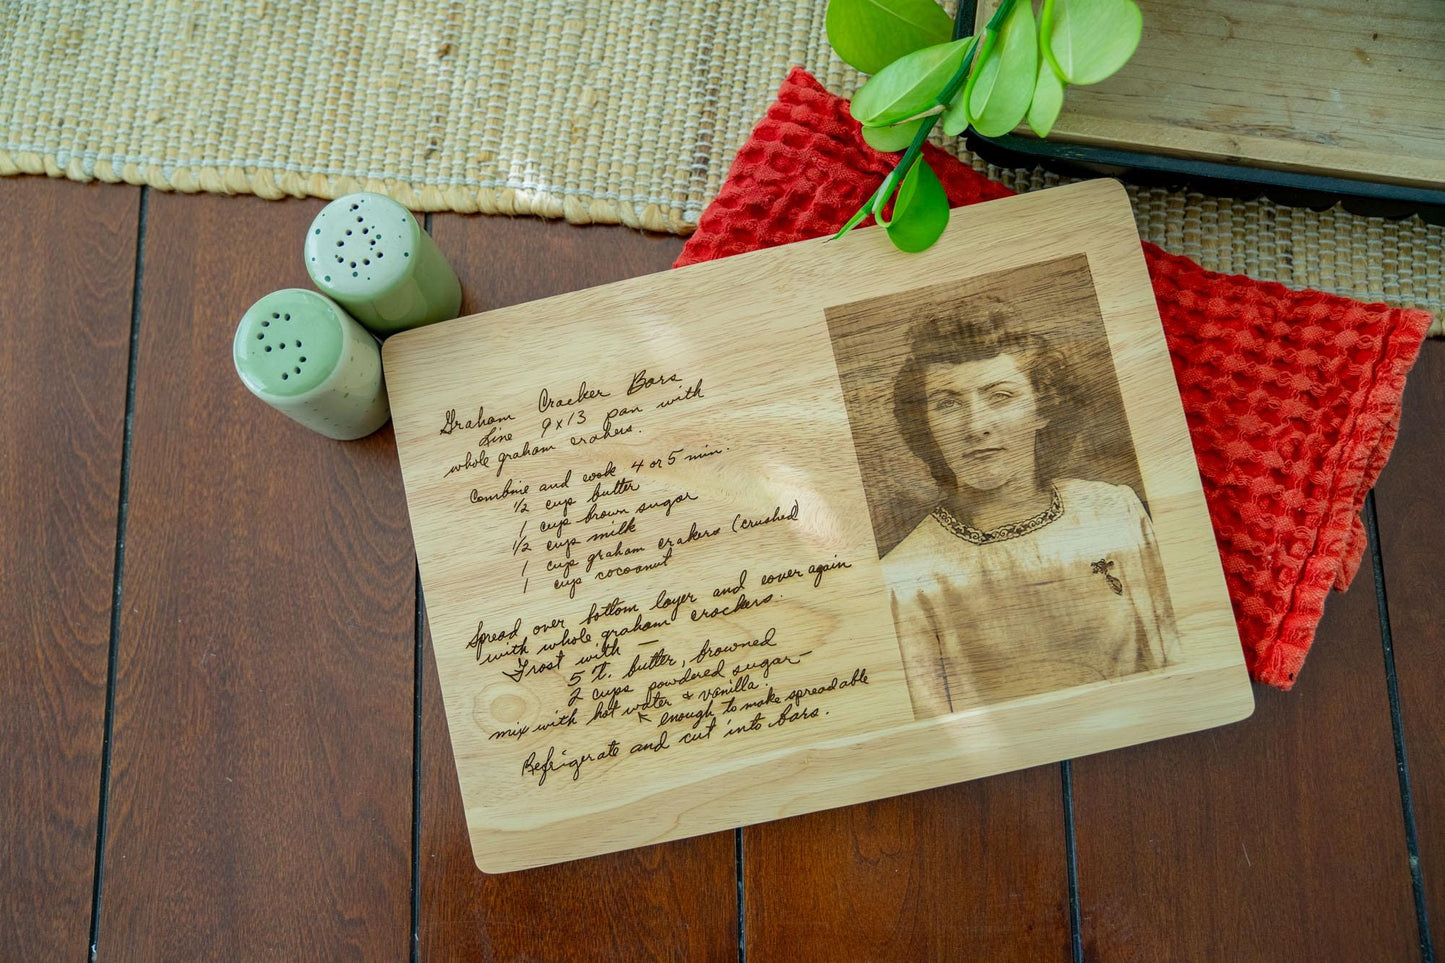 Graham Cracker Bars
Line 9x13 pan with
whole graham crakers.
Combine and cook 4 or 5 min.
1/2 cup butter
1 cup brown sugar
1/2 cup milk
1 cup graham crakers (crushed)
1 cup cocoanut
Spread over bottom layer and cover again
with whole graham crackers.
Frost with —
5 t. butter, browned
2 cups powdered sugar —
mix with hot water & vanilla.
↖ enough to make spreadable
Refrigerate and cut into bars.